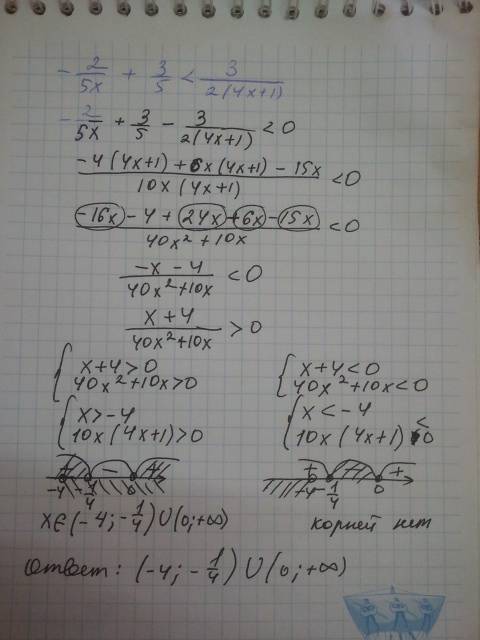 -2/5x + 3/5 < 3/2(4x+1)
-2/5x + 3/5 - 3/2(4x+1) < 0
-4(4x+1)+6x(4x+1)-15x/10x(4x+1) < 0
-16x-4+24x+6x-15x/40x²+10x < 0
-x-4/40x²+10x < 0
x+4/40x²+10x > 0
{ x+4>0 { x+4<0
40x²+10x>0 40x²+10x<0
{ x>-4 { x<-4
10x(4x+1)>0 10x(4x+1)<0
+ - + + - +
-4 -1/4 0 -4 -1/4 0
x∈(-4;-1/4)∪(0;+∞) корней нет
ответ: (-4;-1/4)∪(0;+∞)